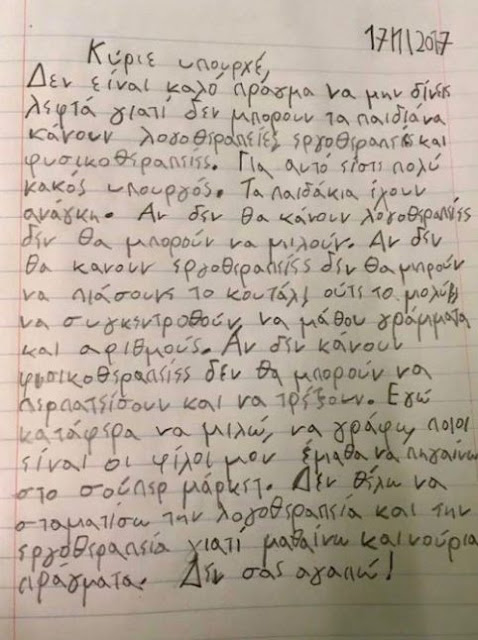 17/11/2017
Κύριε υπουρχέ,
Δεν είναι καλό πράγμα να μην δίνεις
λεφτά γιατί δεν μπορουν τα παιδιάνα
κάνουν λογοθεραπείες, εργοθεραπείες και
φυσικοθεραπείες. Για αυτό είστι πολύ
κακός υπουργός. Τα παιδάκια έχουν
ανάγκη. Αν δεν θα κάνουν λογοθεραπείες
δεν θα μπορούν να μιλούν. Αν δεν
θα κανουν εργοθεραπείες δεν θα μπρούν
να πιάσουνε το κουτάλι ούτε το μολύβι
να συγκεντροθούν να μάθου γράμματα
και αριθμούς. Αν δεν κάνουν
φυσικοθεραπείες δεν θα μπορούν να
περπατείσουν και να τρέξουν. Εγώ
κατάφερα να μιλώ, να γράφω, ποιοι
είναι οι φίλοι μου έμαθα να πηγαίνω
στο σούπερ μάρκετ. Δεν θέλω να
σταματίσω την λογοθεραπεία και την
εργοθεραπεία γιατί μαθαίνω καινούρια
πράγματα. Δεν σας αγαπώ!